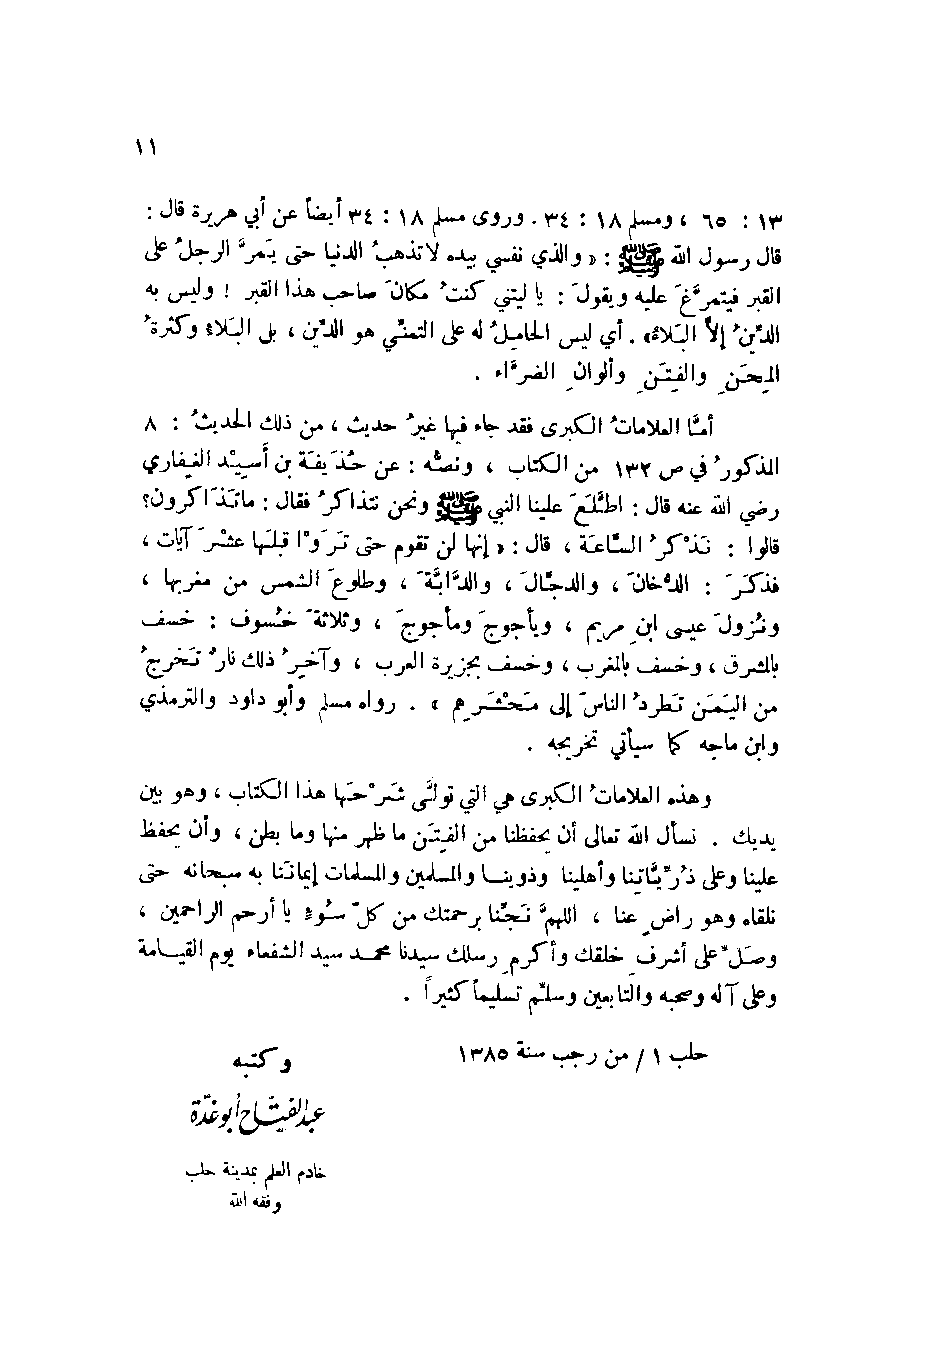 ١١
١٣ : ٦٥ ، ومسلم ١٨ : ٣٤ . وروى مسلم ١٨ : ٣٤ أيضاً عن أبي هريرة قال :
قال رسول الله ﷺ : « والذي نفسي بيده لا تذهبُ الدنيا حتى يَمرَّ الرجلُ على
القبر فيتمرَّغَ عليه ويقولَ : يا ليتني كنتُ مكانَ صاحب هذا القبر ! وليس به
الدِّينُ إلاّ البَلاءُ» . أي ليس الحاملُ له على التمنّي هو الدِّين ، بل البَلاءُ وكثرةُ
المِحَنِ والفِتَنِ وألوانِ الضرَّاء .
أمّا العلاماتُ الكبرى فقد جاء فيها غيرُ حديث ، من ذلك الحديثُ : ٨
المذكورُ في ص ١٣٢ من الكتاب ، ونصُّه : عن حُذَيفَة بن أَسِيْد الغِفاري
رضي الله عنه قال : اطَّلَعَ علينا النبي ﷺ ونحن نتذاكرُ فقال : ماتَذَاكرون؟
قالوا : نَذْكرُ السَّاعَة ، قال : « إنها لن تقوم حتى تَرَوْا قبلَها عشْرَ آيات ،
فذكَرَ : الدُّخانَ ، والدجّالَ ، والدَّابَّةَ ، وطلوعَ الشمس من مغربها ،
ونُزولَ عيسى ابنِ مريم ، ويأجوجَ ومأجوجَ ، وثلاثةَ خُسوف : خسف
بالمشرق ، وخسف بالمغرب ، وخسف بجزيرة العرب ، وآخِرُ ذلك نارٌ تَخرجُ
من اليَمَن تَطردُ الناسَ إلى مَحْشَرِهم » . رواه مسلم وأبو داود والترمذي
وابن ماجه كما سيأتي تخريجه .
وهذه العلاماتُ الكبرى هي التي تولَّى شَرْحَها هذا الكتاب ، وهو بين
يديك . نسأل الله تعالى أن يحفظنا من الفِتَن ما ظهر منها وما بطن ، وأن يحفظ
علينا وعلى ذُرِّيَّاتِنا وأهلينا وذوينا والمسلمين والمسلمات إيمانَنا به سبحانه حتى
نلقاه وهو راضٍ عنا ، اللهمَّ نَجِّنا برحمتك من كلّ سُوءٍ يا أرحم الراحمين ،
وصَلِّ على أشرفِ خلقك وأكرمِ رسلك سيدنا محمد سيد الشفعاء يوم القيامة
وعلى آله وصحبه والتابعين وسلِّم تسليماً كثيراً .
حلب ١ / من رجب سنة ١٣٨٥
وكتبه
عبد الفتاح أبو غدّة
خادم العلم بمدينة حلب
وفقه الله